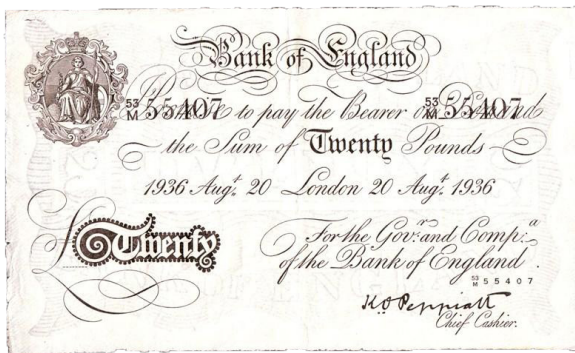 Bank of England
53/M 55407 to pay the Bearer on 53/M 55407
the Sum of Twenty Pounds
1936 Augt. 20 London 20 Augt. 1936
For the Govr. and Compa.
£ Twenty of the Bank of England.
53/M 55407
K.O. Peppiatt
Chief Cashier.